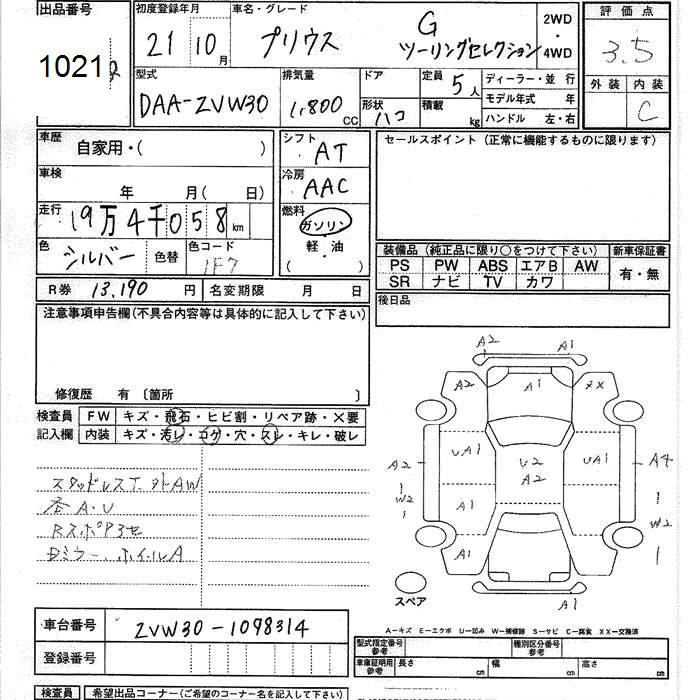 出品番号 初度登録年月 車名・グレード 評価点
1021 21 10月 プリウス G ツーリングセレクション 2WD・4WD 3.5
型式 排気量 ドア 定員 5人 ディーラー・並 行 外装 内装
DAA-ZVW30 1,800cc 形状 ハコ 積載 kg モデル年式 年 C
ハンドル 左・右
車歴 自家用・( ) シフト AT セールスポイント (正規に機能するものに限ります)
車検 年 月( 日) 冷房 AAC
走行 19万4千058km 燃料 ガソリン
色 シルバー 色替 色コード 1F7 軽・油 ( )
装備品 (純正品に限り○をつけて下さい) 新車保証書
PS PW ABS エアB AW 有・無
SR ナビ TV カワ
R券 13,190円 名変期限 月 日 後日品
注意事項申告欄(不具合内容等は具体的に記入して下さい)
修復歴 有 〔箇所 〕
検査員 FW キズ・飛石・ヒビ割・リペア跡・×要
記入欄 内装 キズ・汚レ・コゲ・穴・スレ・キレ・破レ
A2 A1
A2 A1 XX
A2 UA1 U2 A2 UA1 A4
W2 A1 W2
A1
A1
スペア
スタッドレスT 外AW
社A.V
Rスポアヨセ
Dミラー、ホイルA
車台番号 ZVW30-1098314
登録番号
A-キズ E-エクボ U-凹み W-補修跡 S-サビ C-腐食 XX-交換済
型式指定番号 参考 種別区分番号 参考
車庫証明用 参考 長さ cm 幅 cm 高さ cm
検査員 希望出品コーナー(ご希望のコーナー名を記入して下さい)